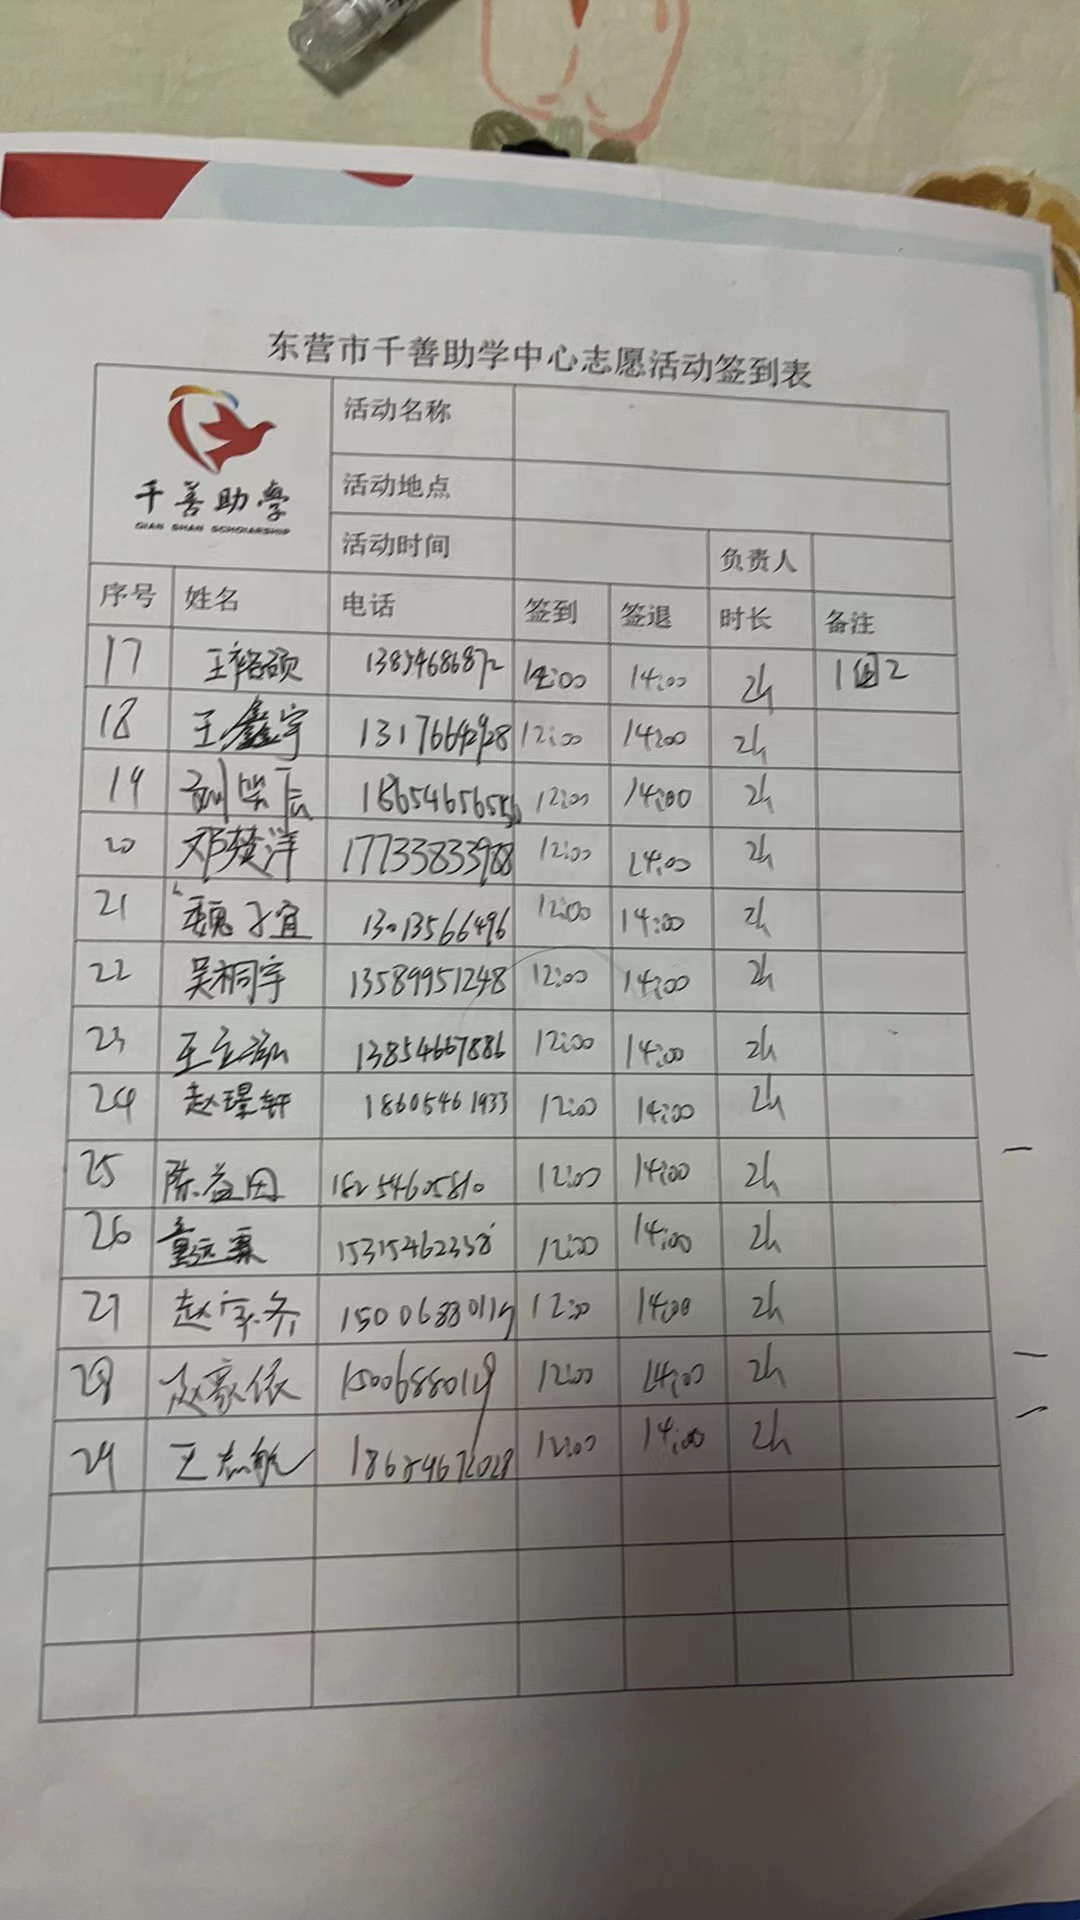 东营市千善助学中心志愿活动签到表
千善助學
QIAN SHAN SCHOLARSHIP
活动名称
活动地点
活动时间 负责人
序号 姓名 电话 签到 签退 时长 备注
17 王裕硕 13854686872 12:00 14:00 2h 1组2
18 王鑫宇 13176642928 12:00 14:00 2h
19 刘 1865465655 12:00 14:00 2h
20 邓楚洋 17733833988 12:00 14:00 2h
21 魏子宜 13013566496 12:00 14:00 2h
22 吴桐宇 13589951248 12:00 14:00 2h
23 王立泓 13854667886 12:00 14:00 2h
24 赵璟轩 18605461933 12:00 14:00 2h
25 陈益田 18254605810 12:00 14:00 2h
26 董远 15315462358 12:00 14:00 2h
27 赵 15006880119 12:00 14:00 2h
28 赵豪依 15006880119 12:00 14:00 2h
29 王志敏 18654672028 12:00 14:00 2h